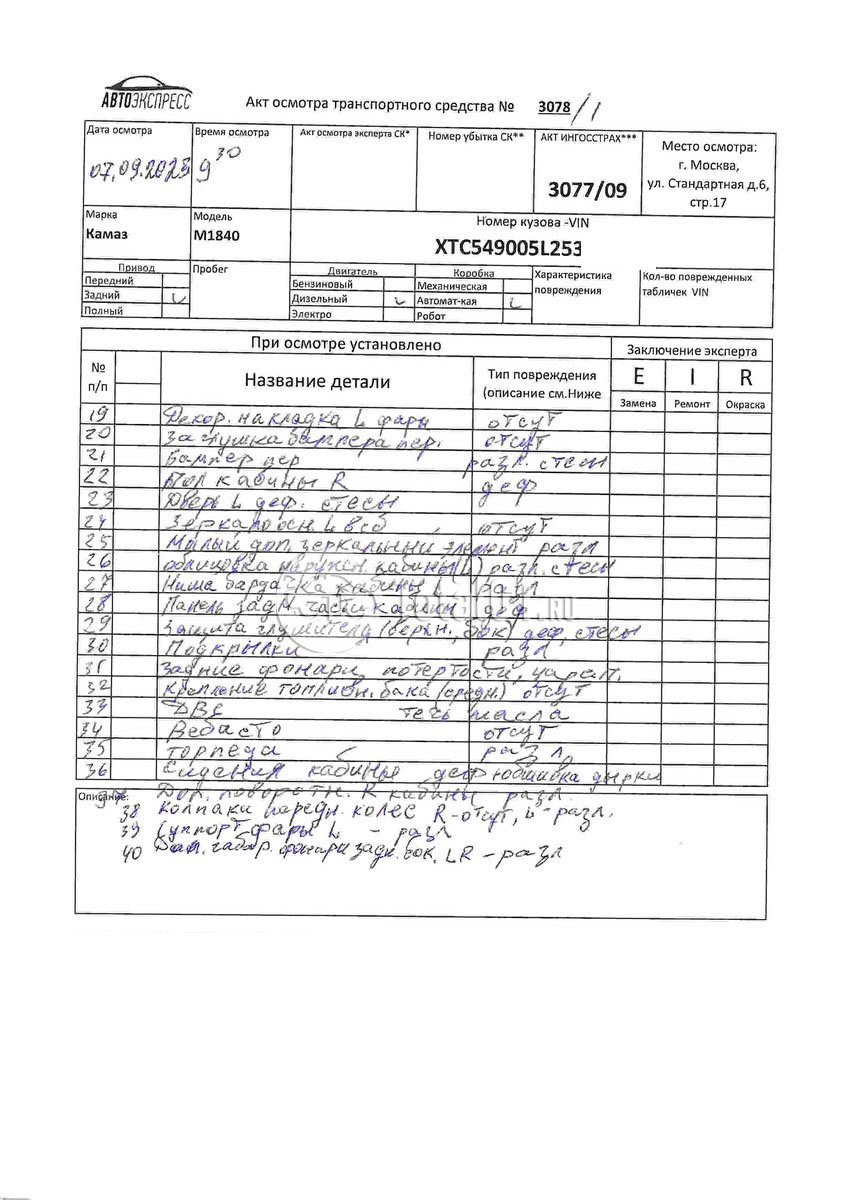 АВТОЭКСПРЕСС
Акт осмотра транспортного средства № 3078/1
Дата осмотра Время осмотра Акт осмотра эксперта СК* Номер убытка СК** АКТ ИНГОССТРАХ*** Место осмотра:
г. Москва,
07.09.2023 9 30 3077/09 ул. Стандартная д.6,
стр.17
Марка Модель Номер кузова -VIN
Камаз М1840 XTC549005L253
Привод Пробег Двигатель Коробка Характеристика повреждения Кол-во поврежденных табличек VIN
Передний Бензиновый Механическая
Задний Дизельный Автомат-кая
Полный Электро Робот
При осмотре установлено Заключение эксперта
№ п/п Название детали Тип повреждения (описание см.Ниже E I R
Замена Ремонт Окраска
19 Декор. накладка L фары отсут
20 Заглушка бампера пер. отсут
21 Бампер пер разл. стесы
22 Пол кабины R деф
23 Дверь L деф. стесы
24 Зеркало осн. L в сб отсут
25 Малый доп. зеркальный элемент разл
26 облицовка наружн. кабины (L) разл. стесы
27 Ниша бардачка кабины L разл
28 Панель задн части кабины деф
29 Защита глушителя (верхн., бок) деф, стесы
30 Подкрылки разл
31 Задние фонари потертости, царап.
32 крепление топливн. бака (средн.) отсут
33 ДВС течь масла
34 Вебасто отсут
35 торпеда разл,
36 Сидения кабины деф обшивка дырки
Описание:
37 Доп. поворотн. R кабины разл.
38 Колпаки передн. колес R-отсут, L-разл.
39 Суппорт фары L - разл
40 габар. фонари задн. бок. LR - разл